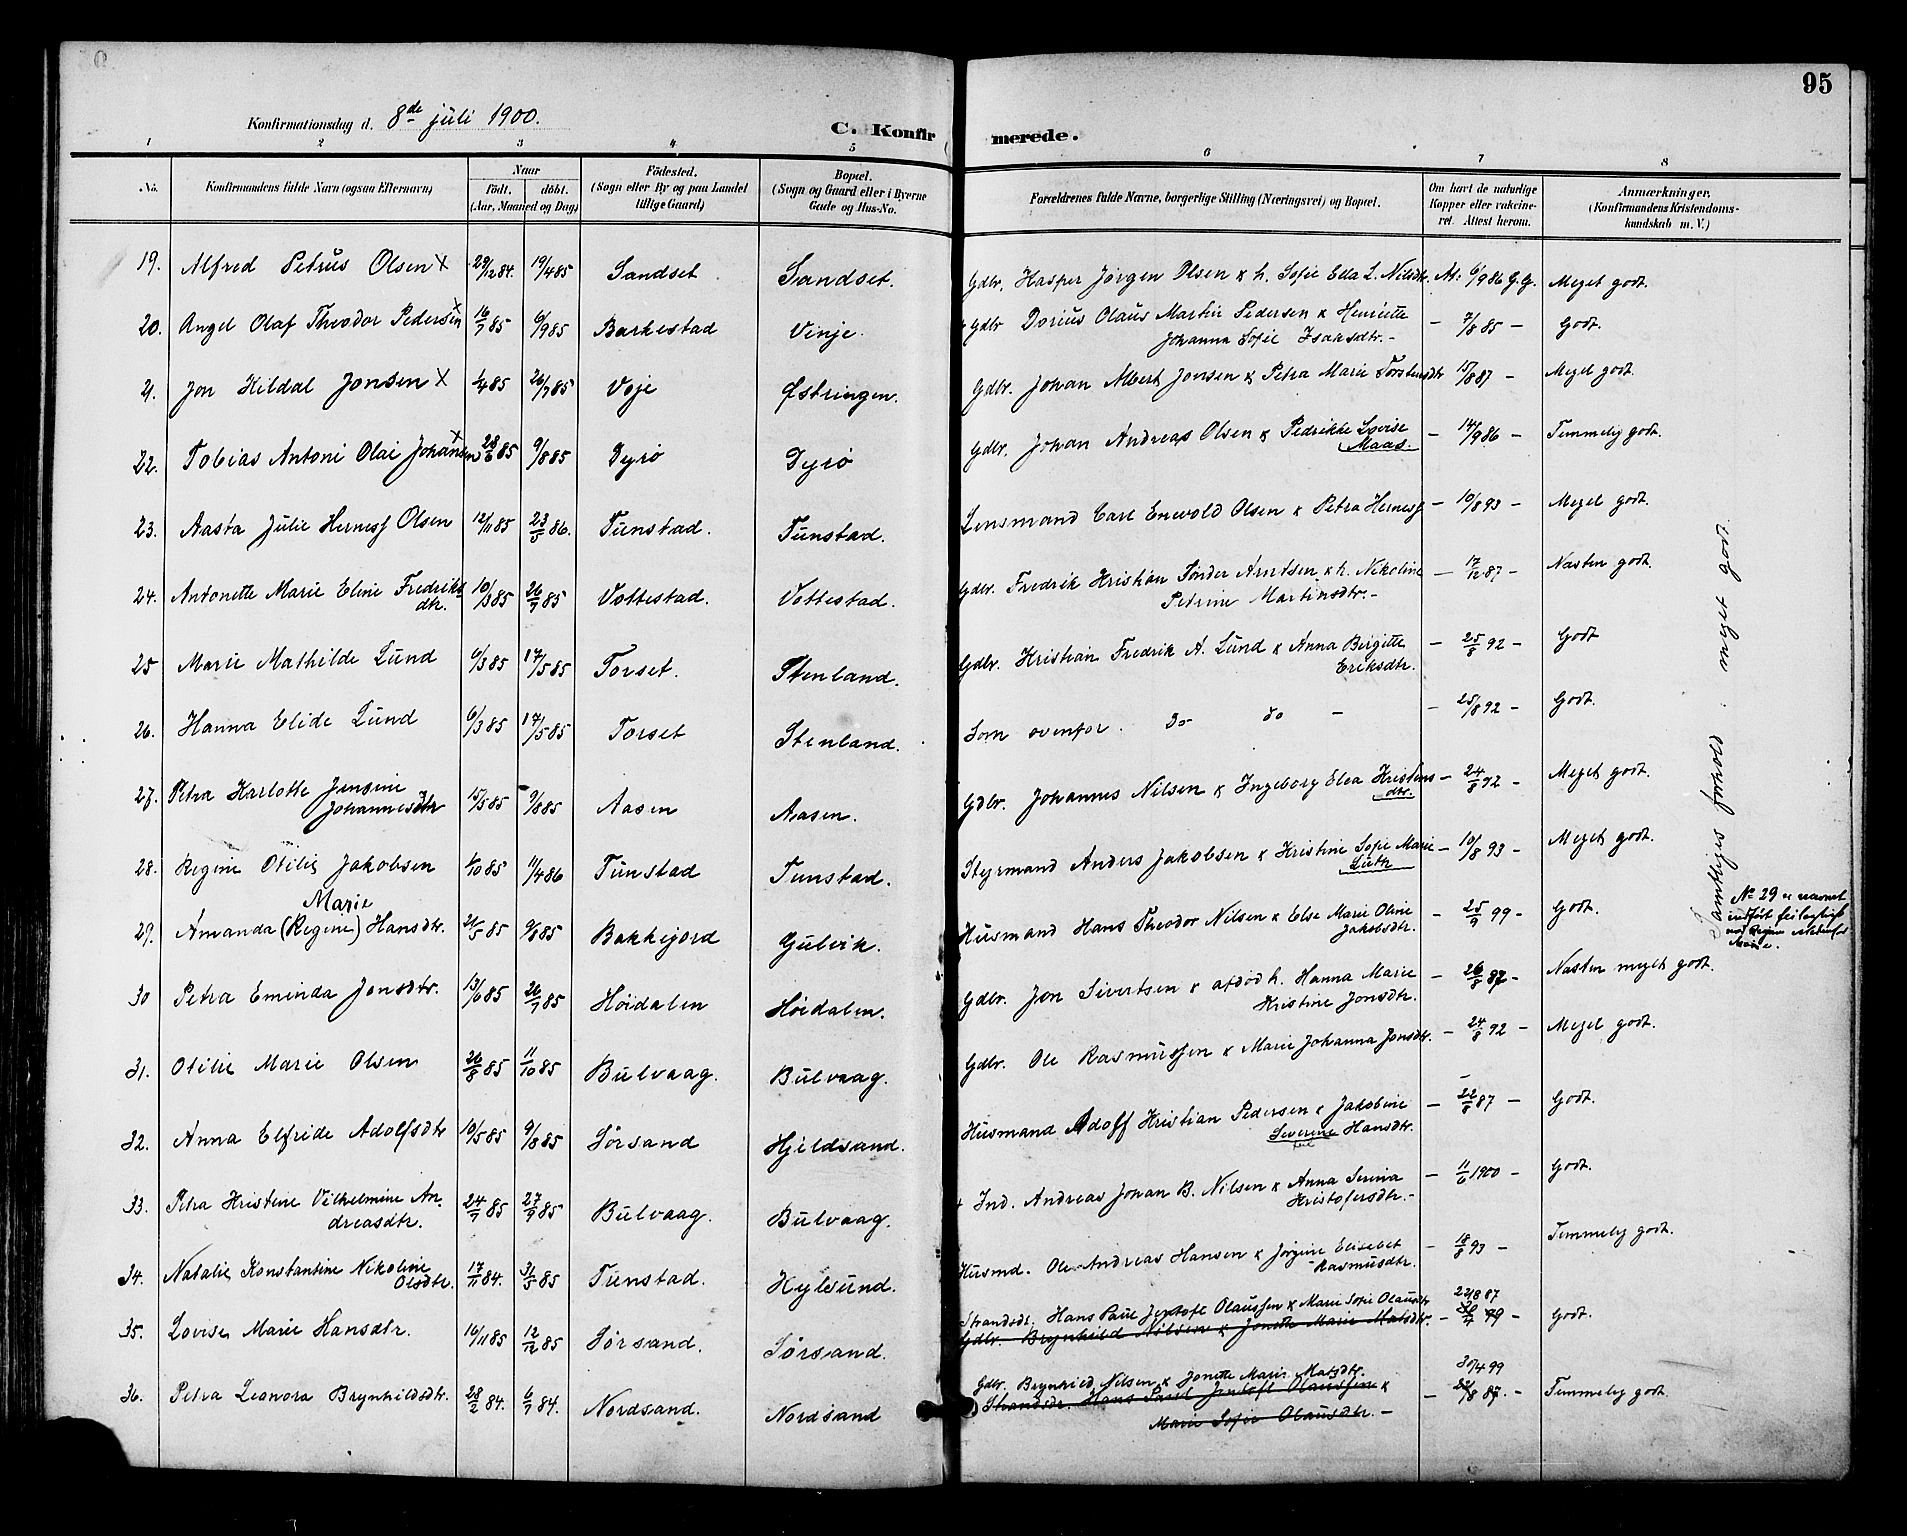 95
Konfirmationsdag d. 8de juli 1900.
C. Konfirmerede.
1 2 3 4 5 6 7 8
No. Konfirmandens fulde Navn (ogsaa Efternavn) Naar födt. döbt. (Aar, Maaned og Dag) Födested. (Sogn eller By og paa Landet tillige Gaard) Bopæl. (Sogn og Gaard eller i Byerne Gade og Hus-No. Forældrenes fulde Navne, borgerlige Stilling (Næringsvei) og Bopæl. Om havt de naturlige Kopper eller vakcineret. Attest herom. Anmærkninger. (Konfirmandens Kristendomskundskab m. V.)
19. Alfred Petrus Olsen x 29/12 84. 19/4 85 Sandset Sandset. Gdbr. Hasper Jørgen Olsen & h. Sofie Eda L. Nilsdtr. At: 6/9 86 G.G. Meget godt.
20. Angel Olaf Theodor Pedersen x 16/7 85 6/9 85 Barkestad Vinje. Gdbr Dorius Olaus Martin Pedersen & Henriette
Johanna Sofie Isaksdtr. – 7/8 85 – Godt.
21. Jon Hildal Jonsen x 1/4 85 26/7 85 Veje Østringen. Gdbr. Johan Albert Jonsen & Petra Marie Torstensdtr 15/8 87 – Meget godt.
22. Tobias Antoni Olai Johansen x 28/6 85 9/8 85 Dyrø Dyrø Gdbr. Johan Andreas Olsen & Pedrikke Lovise
Maas. – 14/9 86 – Temmelig godt.
23. Aasta Julie Herness Olsen 12/11 85 23/5 86. Tunstad. Tunstad. Lensmand Carl Enevold Olsen & Petra Herness – 10/8 93 – Meget godt.
24. Antonette Marie Eline Fredriks
dtr. 10/3 85 26/7 85 Vottestad. Vottestad. Gdbr. Fredrik Kristian Tønder Arntsen & h. Nikoline
Petrine Martinsdtr. – – 17/12 87 – Næsten godt.
25 Marie Mathilde Lund 6/3 85 17/5 85 Torset. Stenland. Gdbr. Kristian Fredrik A. Lund & Anna Birgitte
Eriksdtr. – 25/8 92 – Godt
26. Hanna Elide Lund 6/3 85 17/5 85 Torset Stenland. Som ovenfor. Do do – – 25/8 92 – Godt.
27. Petra Karlotte Jensine
Johannesdtr 15/5 85 9/8 85 Aasen Aasen. Gdbr. Johannes Nilsen & Ingeborg Elea Kristens
dtr. – 24/8 92 – Meget godt.
28. Regine Otilie Jakobsen 1/10 85 11/4 86 Tunstad Tunstad. Styrmand Anders Jakobsen & Kristine Sofie Marie
Lüth – 10/8 93 – Meget godt.
Marie
29. Amanda (Regine) Hansdtr. 21/5 85 9/8 85 Bakkejord Gulvik. Husmand Hans Theodor Nilsen & Else Marie Oline
Jakobsdtr. – 25/9 99 – Godt.
No 29 er
indført feilagtigt
Marie.
30 Petra Eminda Jonsdtr. 13/6 85 26/7 85 Høidalen Høidalen. Gdbr. Jon Sivertsen & afdød h. Hanna Marie
Kristine Jonsdtr. – 26/8 87 – Næsten meget godt.
31. Otilie Marie Olsen 26/8 85 11/10 85 Bulvaag. Bulvaag. Gdbr. Ole Rasmussen & Marie Johanna Jonsdtr. – 24/8 92 – Meget godt.
32. Anna Elfride Adolfsdtr 10/5 85 9/8 85 Sørsand Hjeldsand. Husmand Adoff Kristian Pedersen & Jakobine
Severine Hansdtr. – 22/8 87 – Godt.
33. Petra Kristine Vilhelmine An-
dreasdtr. 24/7 85 27/9 85 Bulvaag. Bulvaag. Ind. Andreas Johan B. Nilsen & Anna Serina
Kristofersdtr. – – 11/6 1900 – Godt.
34. Natalie Konstantine Nikoline
Olsdtr. 17/11 84. 31/5 85 Tunstad. Hylsund. Husmd. Ole Andreas Hansen & Jørgine Elisebet
Rasmusdtr. – 18/8 93 – Temmelig godt.
35. Lovise Marie Hansdtr. 16/11 85 12/12 85 Sørsand. Sørsand. Strandsdr. Hans Paul Jentoft Olaussen & Marie Sofie Olausdtr 22/8 87
Gdbr. Brynhild Nilsen & Jonette Marie Matsdtr. – 30/4 99 – Godt.
36. Petra Leonora Brynhildsdtr. 28/2 84. 6/7 84. Nordsand. Nordsand Gdbr. Brynhild Nilsen & Jonette Marie Matsdtr. 30/4 99
Strandsdr. Hans Paul Jentoft Olaussen &
Marie Sofie Olausdtr. – – 22/8 87. – Temmelig godt.
Samtliges forhold: meget godt.